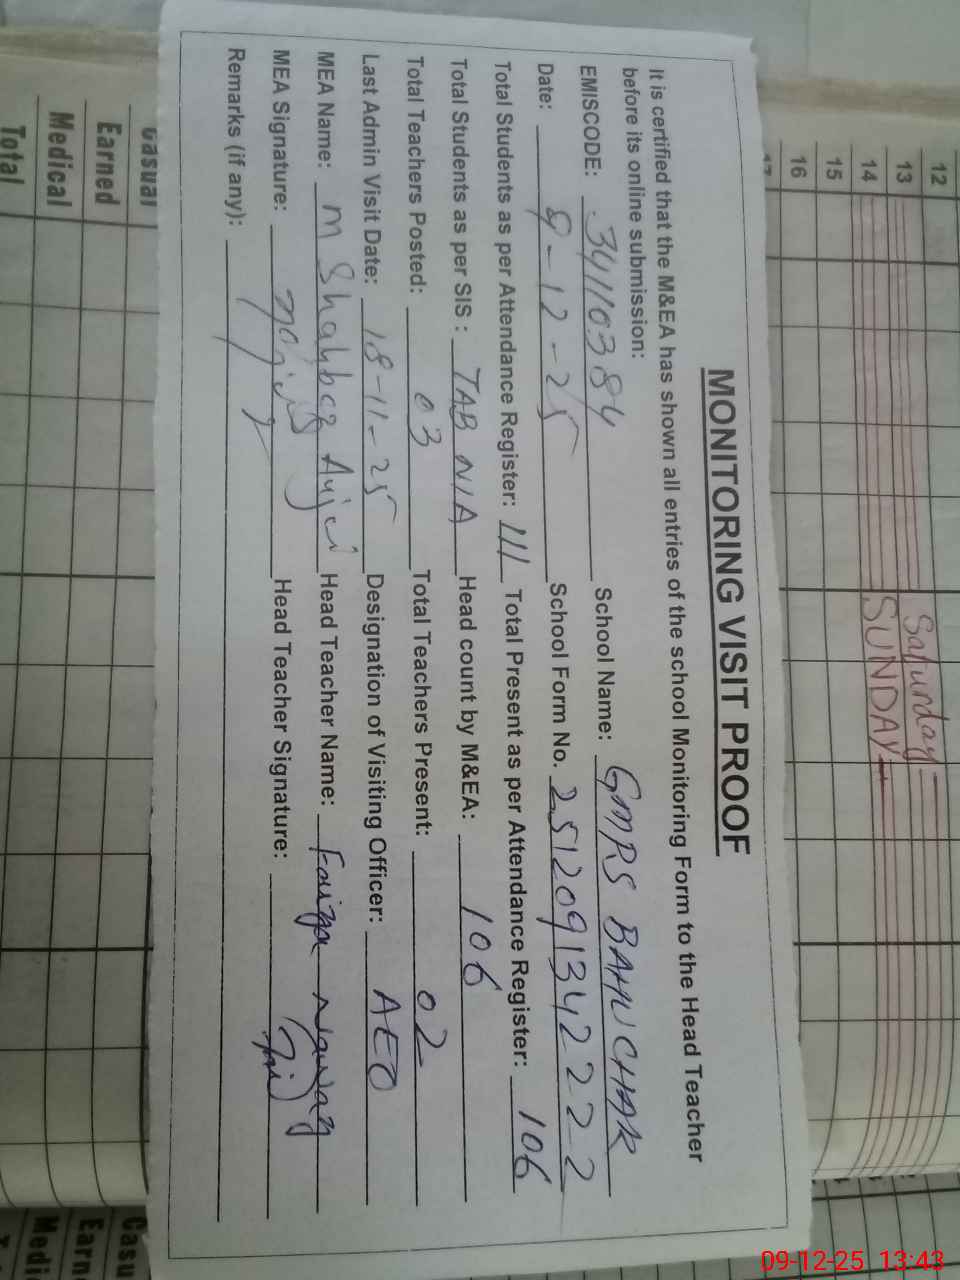 MONITORING VISIT PROOF
It is certified that the M&EA has shown all entries of the school Monitoring Form to the Head Teacher
before its online submission:
EMISCODE: 34110384 School Name: GMPS BAHUCHAR
Date: 9-12-25 School Form No. 2512091342222
Total Students as per Attendance Register: 111 Total Present as per Attendance Register: 106
Total Students as per SIS : TAB N/A Head count by M&EA: 106
Total Teachers Posted: 03 Total Teachers Present: 02
Last Admin Visit Date: 18-11-25 Designation of Visiting Officer: AEO
MEA Name: M Shahbaz Head Teacher Name:
MEA Signature: Head Teacher Signature:
Remarks (if any):
12
13 Saturday
14 SUNDAY
15
16
17
Casual
Earned
Medical
Total
Casu
Earn
Medi
09-12-25 13:43